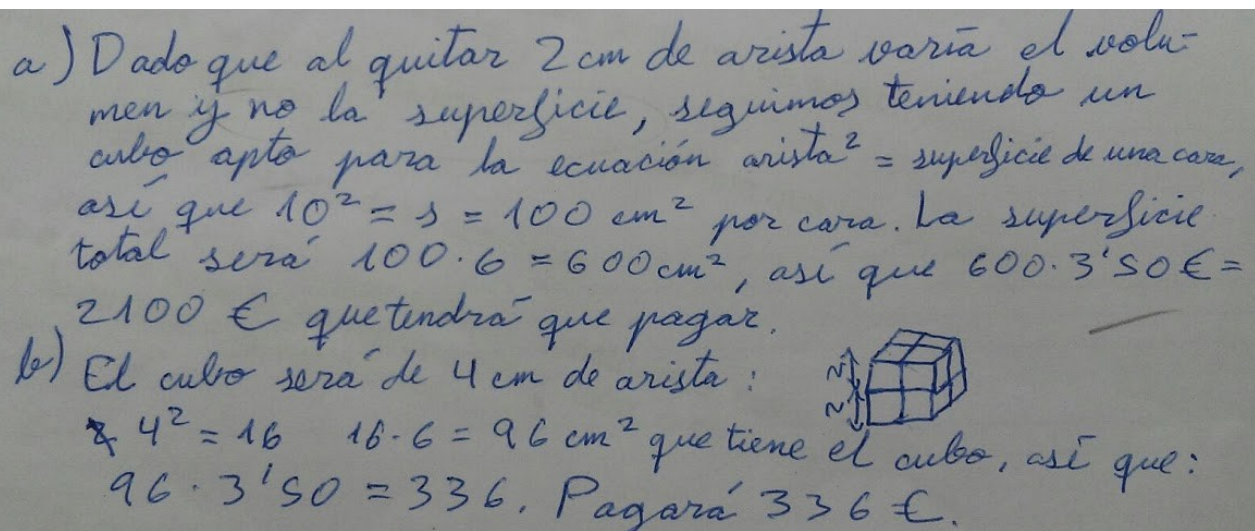 a) Dado que al quitar 2 cm de arista varía el volu-
men y no la superficie, seguimos teniendo un
cubo apto para la ecuación arista² = superficie de una cara,
así que 10² = s = 100 cm² por cara. La superficie
total será 100·6 = 600 cm², así que 600·3'50€ =
2100 € que tendrá que pagar.
b) El cubo será de 4 cm de arista:
2
2
4² = 16 16·6 = 96 cm² que tiene el cubo, así que:
96·3'50 = 336. Pagará 336 €.